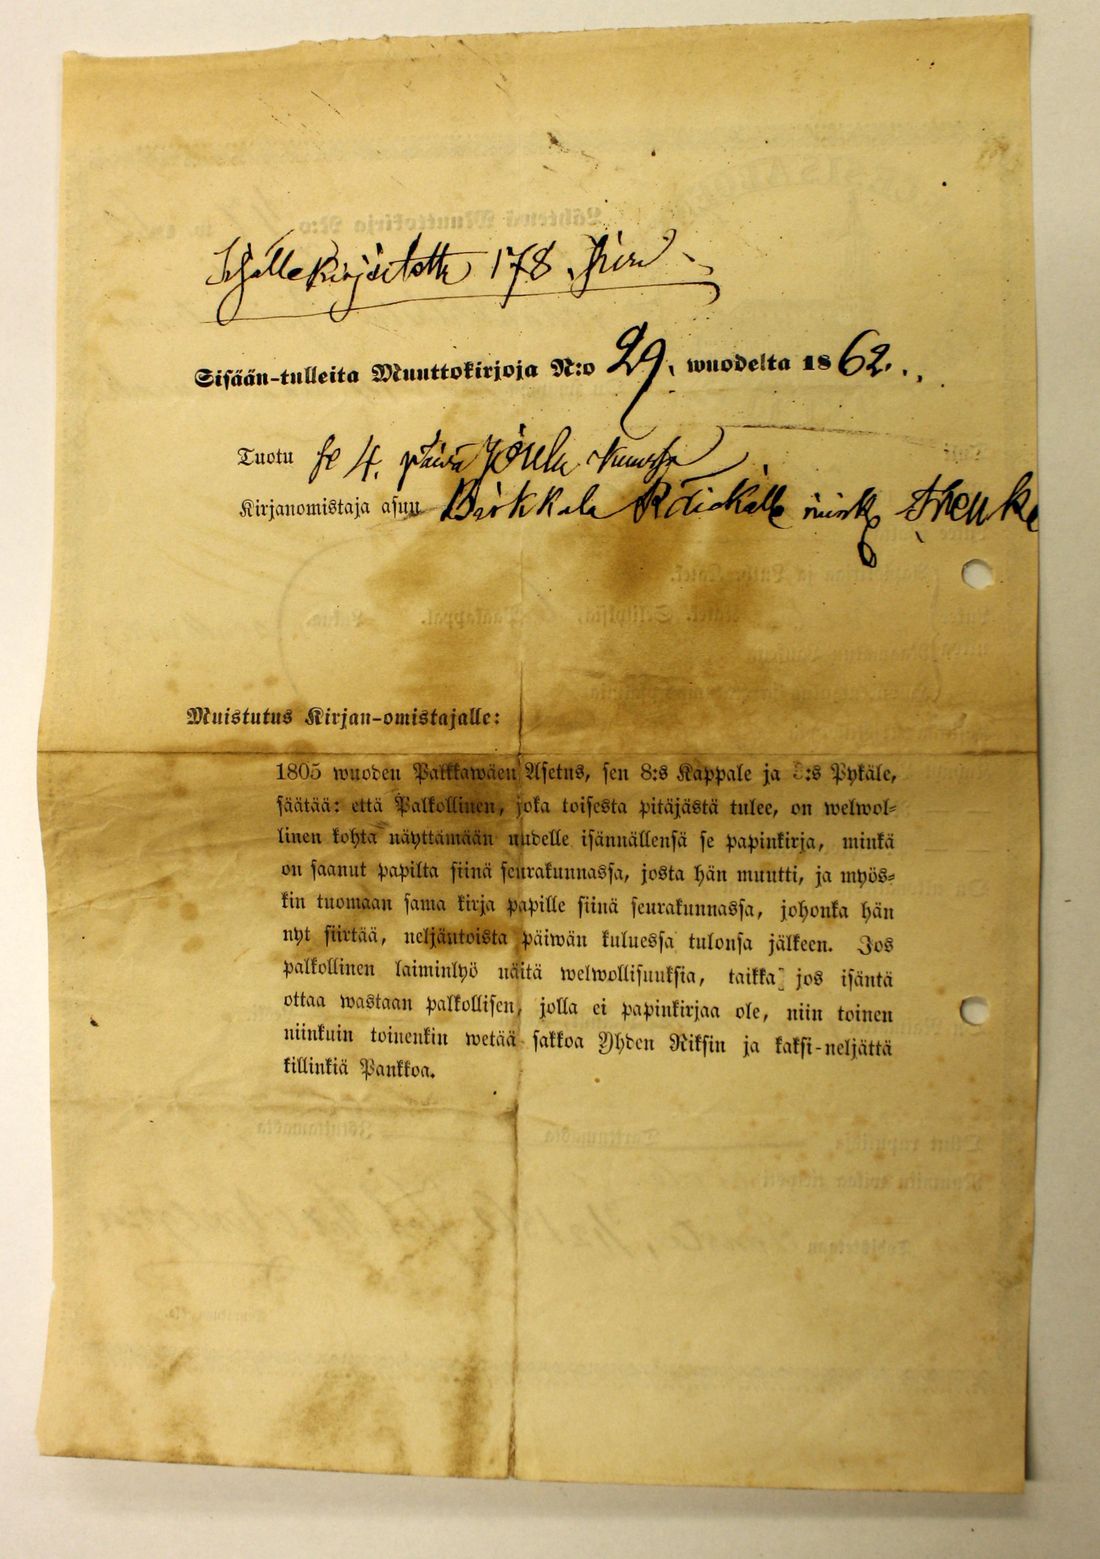 178
Sisään-tulleita Muuttokirjoja N:o 29. wuodelta 1862.
Tuotu se 4. päivä
Kirjanomistaja asuu Birkkala
Muistutus Kirjan-omistajalle:
1805 wuoden Palkkawäen Asetus, sen 8:s Kappale ja :s Pykäle,
säätää: että Palkollinen, joka toisesta pitäjästä tulee, on welwol-
linen kohta näyttämään uudelle isännällensä se papinkirja, minkä
on saanut papilta siinä seurakunnassa, josta hän muutti, ja myös-
kin tuomaan sama kirja papille siinä seurakunnassa, johonka hän
nyt siirtää, neljäntoista päiwän kuluessa tulonsa jälkeen. Jos
palkollinen laiminlyö näitä welwollisuuksia, taikka jos isäntä
ottaa wastaan palkollisen, jolla ei papinkirjaa ole, niin toinen
niinkuin toinenkin wetää sakkoa Yhden Riksin ja kaksi-neljättä
killinkiä Pankkoa.